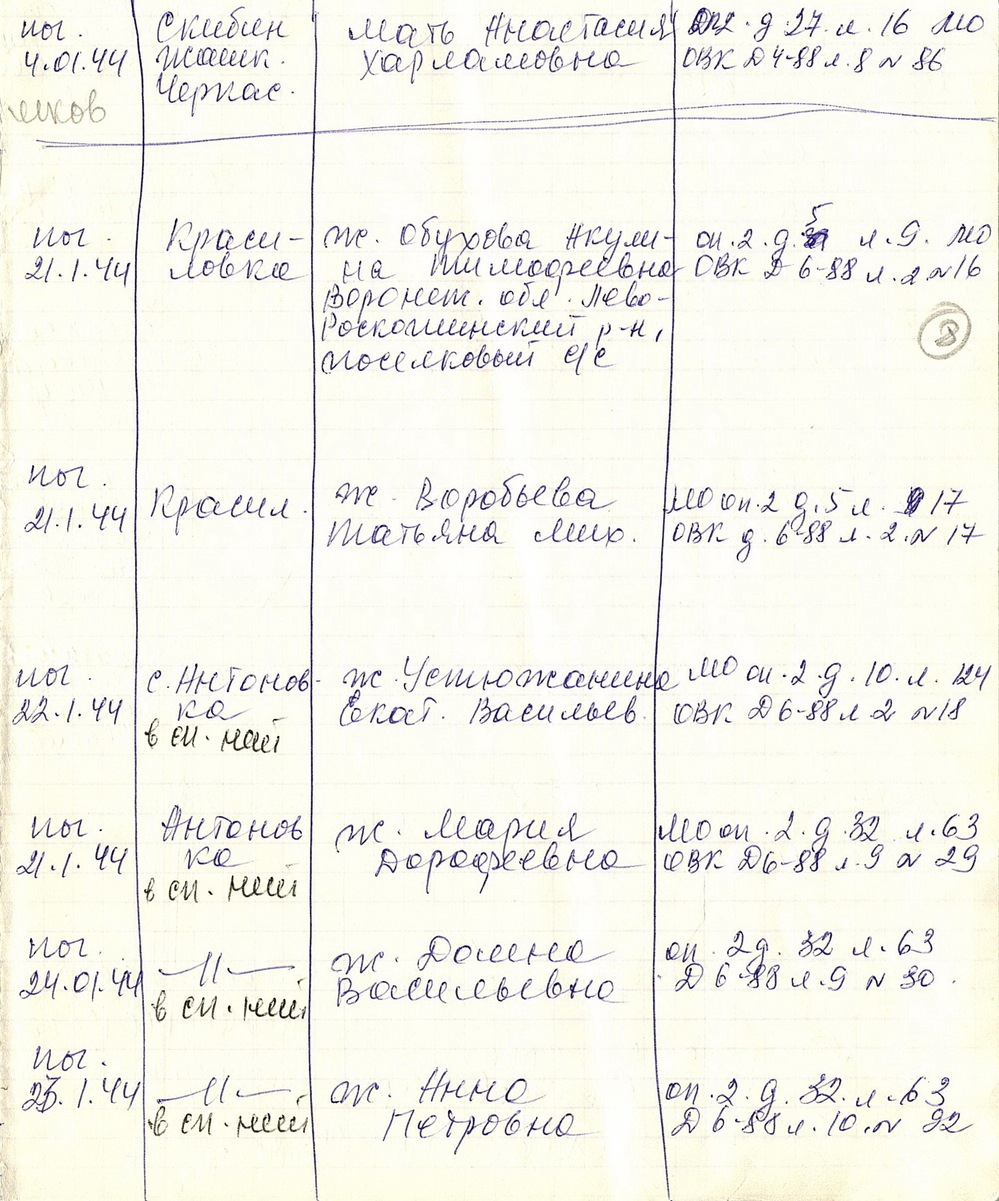 пог.
4.01.44
Скибин
Жашк.
Черкас.
мать Анастасия
Харламовна
оп2. д 27 л. 16 МО
ОВК Д4-88 л. 8 № 86
пог.
21.1.44
Краси-
ловка
ж. Обухова Акули-
на Тимофеевна
Воронеж. обл. Лево-
Роскошинский р-н,
поселковый с/с
оп. 2. д. 5 л. 9. МО
ОВК Д 6-88 л. 2 № 16
3
пог.
21.1.44
Красил.
ж. Воробьева
Татьяна Мих.
МО оп. 2 д. 5 л. 17
ОВК д. 6-88 л. 2. № 17
пог.
22.1.44
с. Антонов-
ка
в сп. нет
ж. Устюжанина
Екат. Васильев.
МО оп. 2. д. 10. л. 124
ОВК Д6-88 л 2 №18
пог.
21.1.44
Антонов
ка
в сп. нет
ж. Мария
Дорофеевна
МО оп. 2. д. 32 л. 63
ОВК Д6-88 л. 9 № 29
пог.
24.01.44
—II—
в сп. нет
ж. Домна
Васильевна
оп. 2 д. 32 л. 63
Д 6-88 л. 9 № 30.
пог.
1.44
—II—
в сп. нет
ж. Анна
Петровна
оп. 2. д. 32. л. 63
Д 6-88 л. 10. №